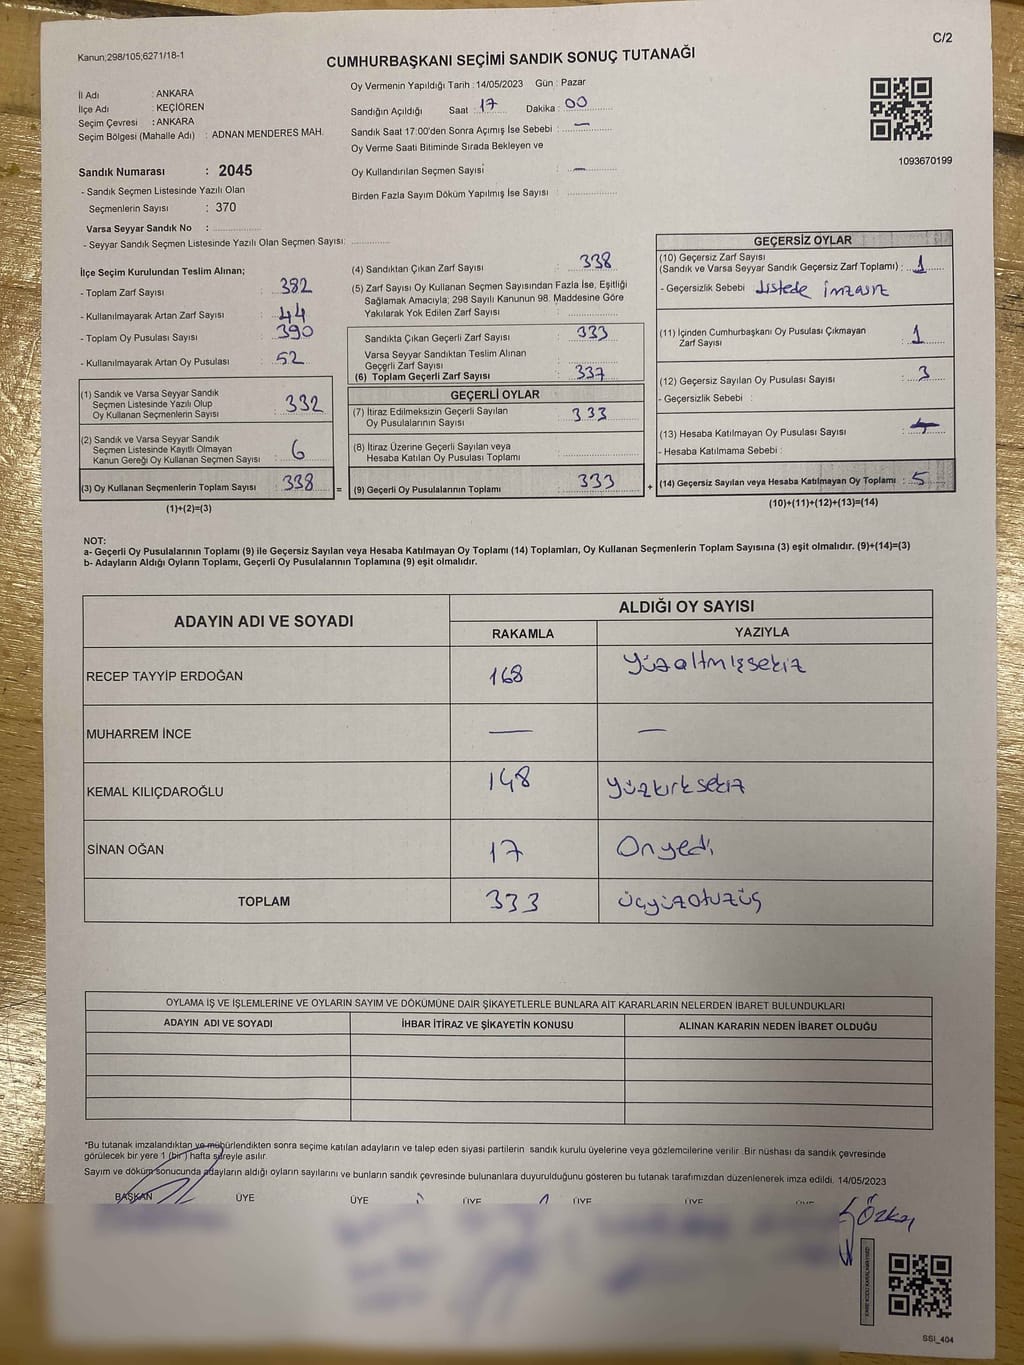 Kanun;298/105;6271/18-1
C/2
CUMHURBAŞKANI SEÇİMİ SANDIK SONUÇ TUTANAĞI
İl Adı : ANKARA
İlçe Adı : KEÇİÖREN
Seçim Çevresi : ANKARA
Seçim Bölgesi (Mahalle Adı) : ADNAN MENDERES MAH.
Sandık Numarası : 2045
- Sandık Seçmen Listesinde Yazılı Olan
Seçmenlerin Sayısı : 370
Varsa Seyyar Sandık No :
- Seyyar Sandık Seçmen Listesinde Yazılı Olan Seçmen Sayısı:
Oy Vermenin Yapıldığı Tarih : 14/05/2023 Gün : Pazar
Sandığın Açıldığı Saat : 17 Dakika : 00
Sandık Saat 17:00'den Sonra Açımış İse Sebebi : —
Oy Verme Saati Bitiminde Sırada Bekleyen ve
Oy Kullandırılan Seçmen Sayısı : —
Birden Fazla Sayım Döküm Yapılmış İse Sayısı :
1093670199
İlçe Seçim Kurulundan Teslim Alınan;
- Toplam Zarf Sayısı : 382
- Kullanılmayarak Artan Zarf Sayısı : 44
- Toplam Oy Pusulası Sayısı : 390
- Kullanılmayarak Artan Oy Pusulası : 52
(1) Sandık ve Varsa Seyyar Sandık
Seçmen Listesinde Yazılı Olup
Oy Kullanan Seçmenlerin Sayısı : 332
(2) Sandık ve Varsa Seyyar Sandık
Seçmen Listesinde Kayıtlı Olmayan
Kanun Gereği Oy Kullanan Seçmen Sayısı : 6
(3) Oy Kullanan Seçmenlerin Toplam Sayısı : 338
(1)+(2)=(3)
=
(4) Sandıktan Çıkan Zarf Sayısı : 338
(5) Zarf Sayısı Oy Kullanan Seçmen Sayısından Fazla İse, Eşitliği
Sağlamak Amacıyla; 298 Sayılı Kanunun 98. Maddesine Göre
Yakılarak Yok Edilen Zarf Sayısı :
Sandıkta Çıkan Geçerli Zarf Sayısı : 333
Varsa Seyyar Sandıktan Teslim Alınan
Geçerli Zarf Sayısı :
(6) Toplam Geçerli Zarf Sayısı : 337
GEÇERLİ OYLAR
(7) İtiraz Edilmeksizin Geçerli Sayılan
Oy Pusulalarının Sayısı : 333
(8) İtiraz Üzerine Geçerli Sayılan veya
Hesaba Katılan Oy Pusulası Toplamı :
(9) Geçerli Oy Pusulalarının Toplamı : 333
+
GEÇERSİZ OYLAR
(10) Geçersiz Zarf Sayısı
(Sandık ve Varsa Seyyar Sandık Geçersiz Zarf Toplamı) : 1
- Geçersizlik Sebebi : Listede imzasız
(11) İçinden Cumhurbaşkanı Oy Pusulası Çıkmayan
Zarf Sayısı : 1
(12) Geçersiz Sayılan Oy Pusulası Sayısı : 3
- Geçersizlik Sebebi :
(13) Hesaba Katılmayan Oy Pusulası Sayısı :
- Hesaba Katılmama Sebebi :
(14) Geçersiz Sayılan veya Hesaba Katılmayan Oy Toplamı : 5
(10)+(11)+(12)+(13)=(14)
NOT:
a- Geçerli Oy Pusulalarının Toplamı (9) ile Geçersiz Sayılan veya Hesaba Katılmayan Oy Toplamı (14) Toplamları, Oy Kullanan Seçmenlerin Toplam Sayısına (3) eşit olmalıdır. (9)+(14)=(3)
b- Adayların Aldığı Oyların Toplamı, Geçerli Oy Pusulalarının Toplamına (9) eşit olmalıdır.
ADAYIN ADI VE SOYADI ALDIĞI OY SAYISI
RAKAMLA YAZIYLA
RECEP TAYYİP ERDOĞAN 168 Yüzaltmışsekiz
MUHARREM İNCE — —
KEMAL KILIÇDAROĞLU 148 Yüzkırksekiz
SİNAN OĞAN 17 Onyedi
TOPLAM 333 üçyüzotuzüç
OYLAMA İŞ VE İŞLEMLERİNE VE OYLARIN SAYIM VE DÖKÜMÜNE DAİR ŞİKAYETLERLE BUNLARA AİT KARARLARIN NELERDEN İBARET BULUNDUKLARI
ADAYIN ADI VE SOYADI İHBAR İTİRAZ VE ŞİKAYETİN KONUSU ALINAN KARARIN NEDEN İBARET OLDUĞU
*Bu tutanak imzalandıktan ve mühürlendikten sonra seçime katılan adayların ve talep eden siyasi partilerin sandık kurulu üyelerine veya gözlemcilerine verilir .Bir nüshası da sandık çevresinde
görülecek bir yere 1 (bir ) hafta süreyle asılır.
Sayım ve döküm sonucunda adayların aldığı oyların sayılarını ve bunların sandık çevresinde bulunanlara duyurulduğunu gösteren bu tutanak tarafımızdan düzenlenerek imza edildi. 14/05/2023
BAŞKAN ÜYE ÜYE ÜYE ÜYE ÜYE ÜYE
SSI_404